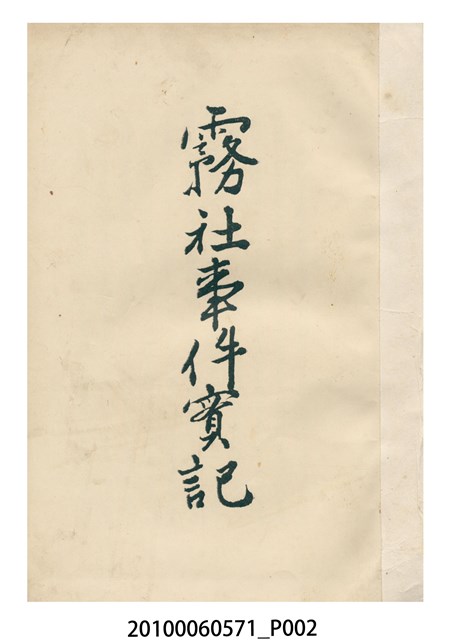 霧社事件實記
20100060571_P002